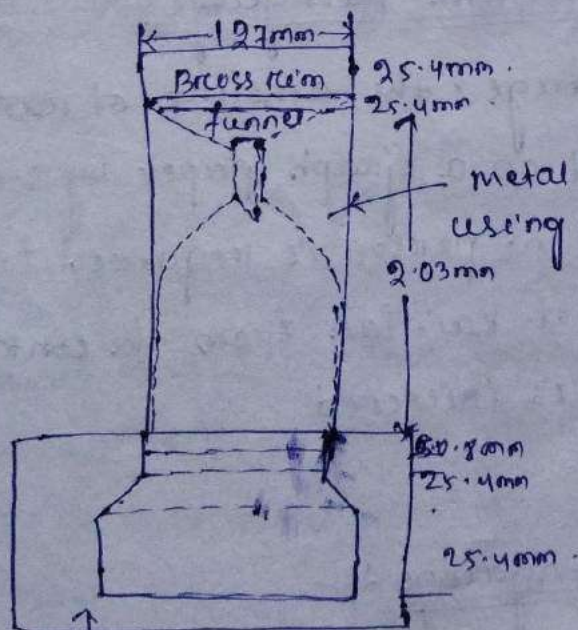 127mm
Brass rim
25.4mm.
25.4mm.
funnel
metal
using
2.03mm
50.8mm
25.4mm
25.4mm.